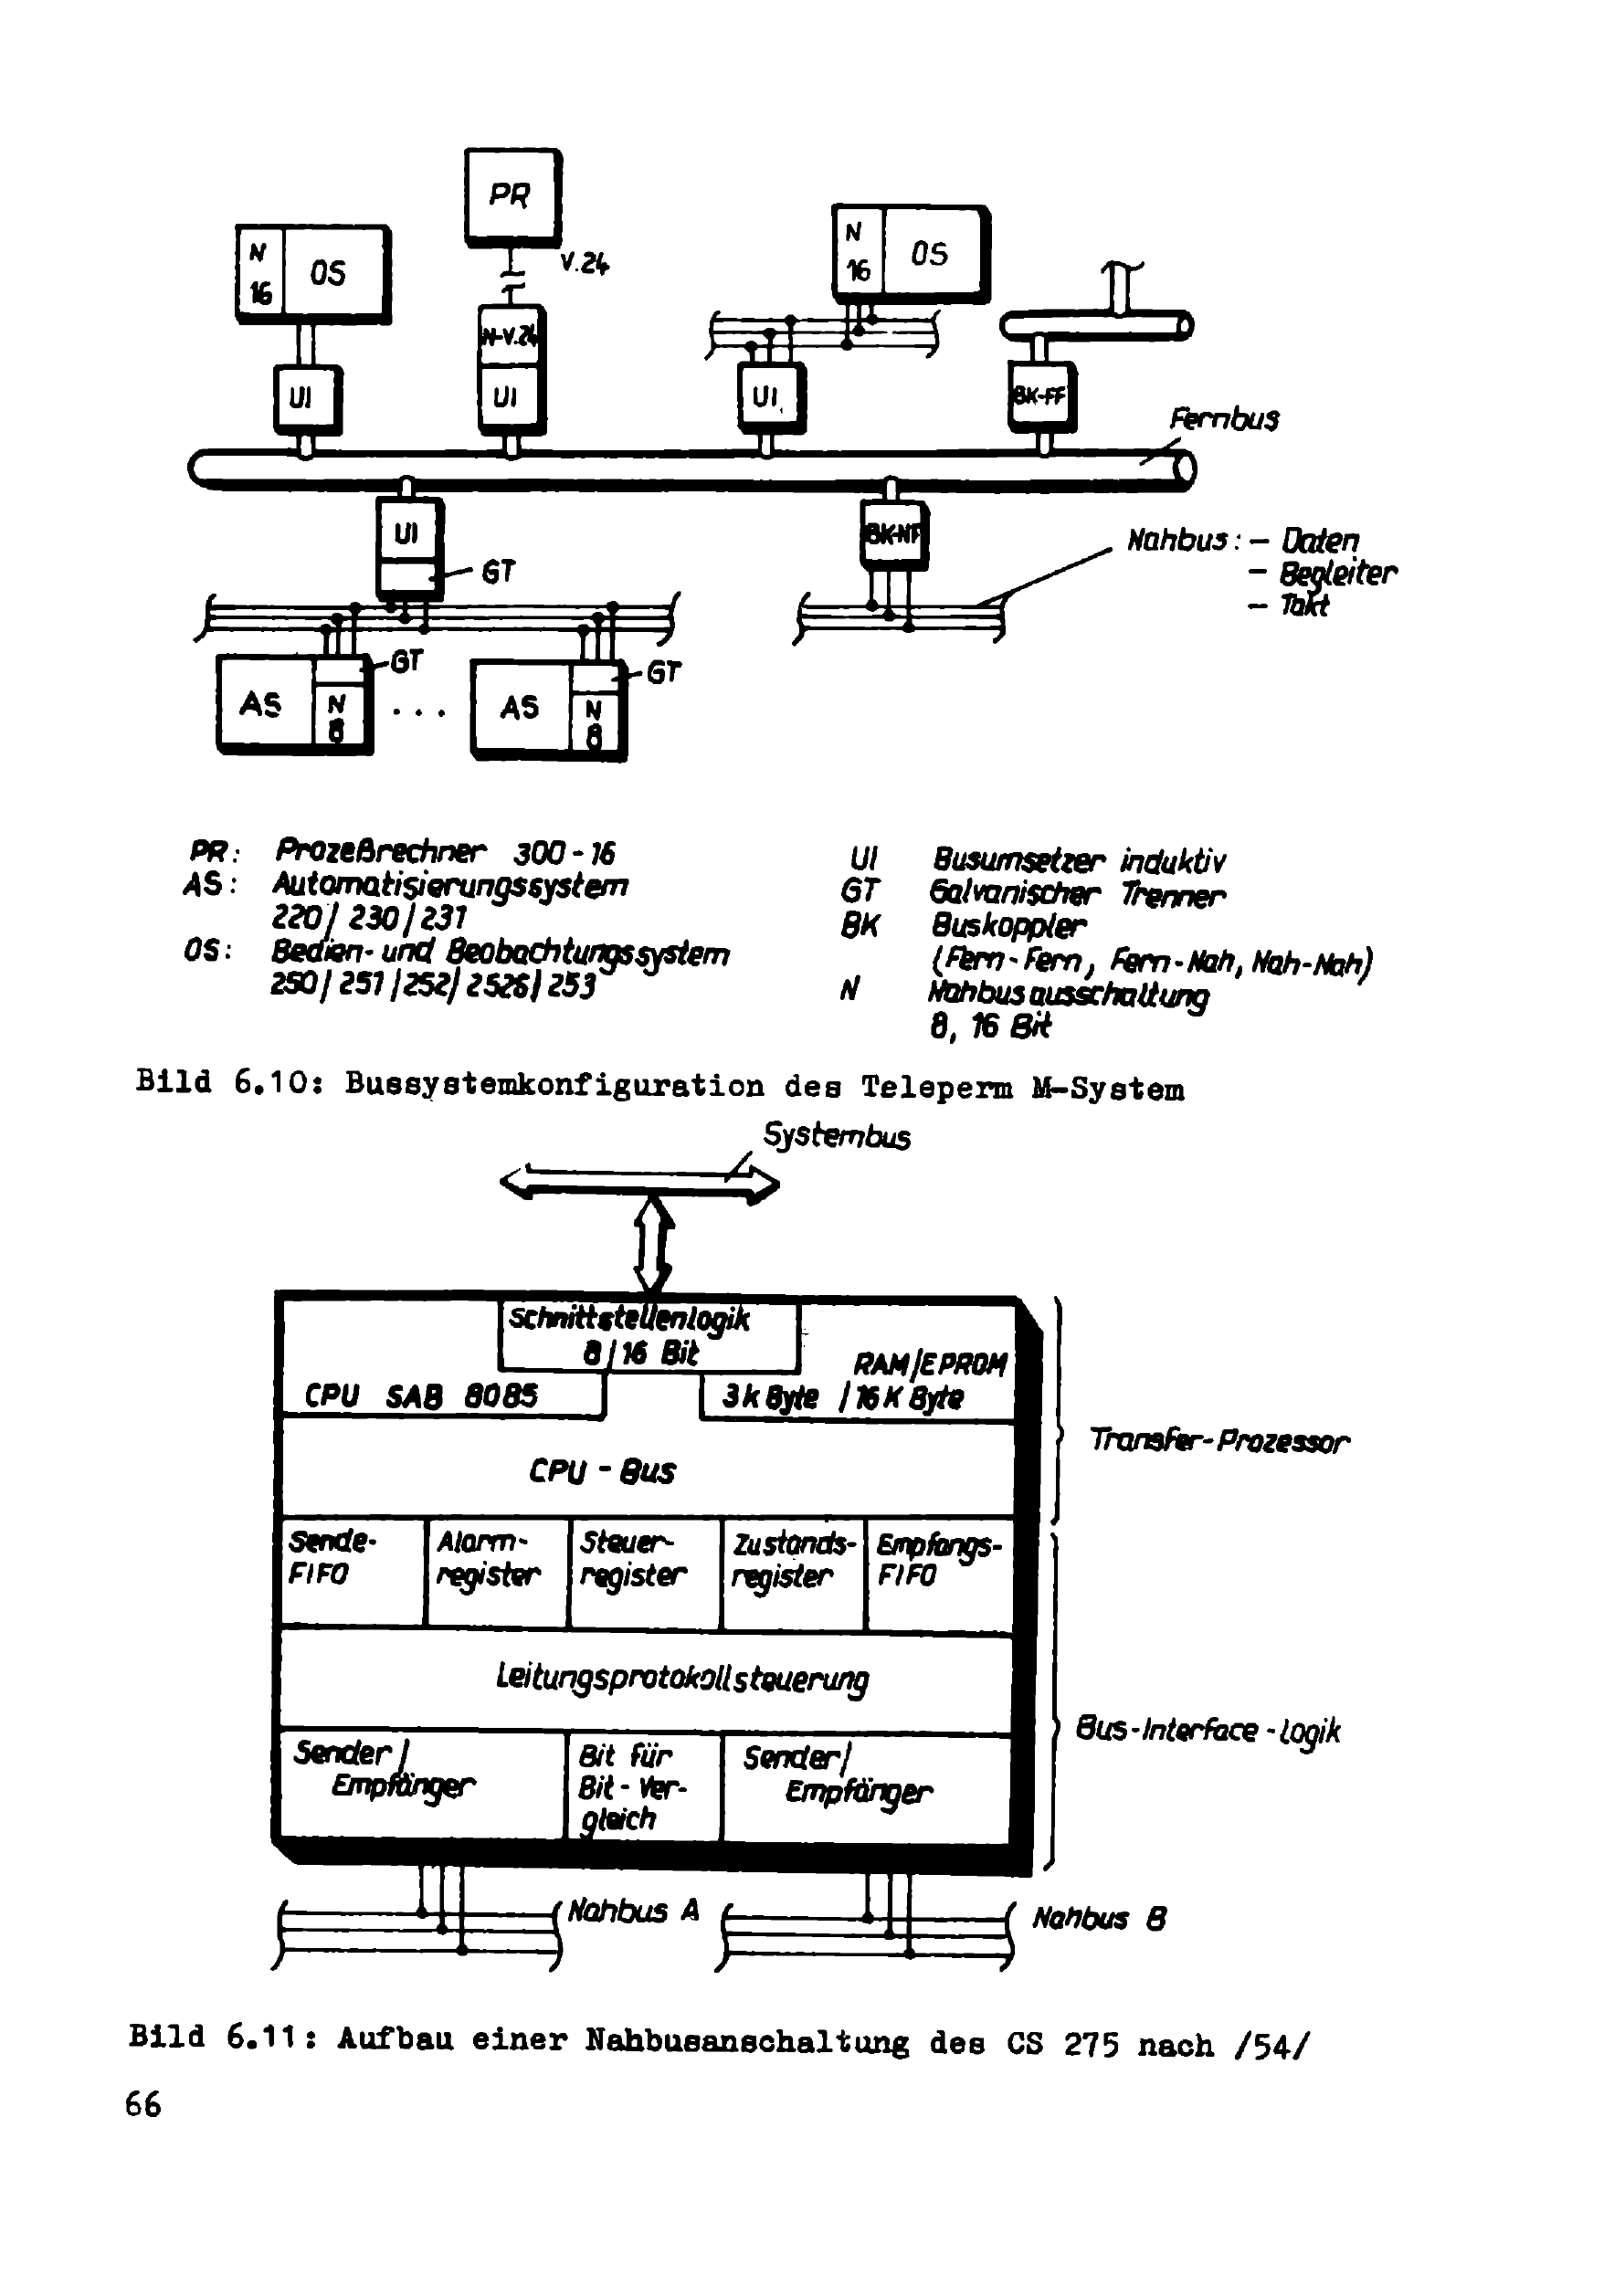 PR
V.24
N
16
OS
N
16
OS
N-V.24
UI
UI
UI
BK-FF
Fernbus
UI
BK-NF
GT
Nahbus: – Daten
– Begleiter
– Takt
GT
GT
AS
N
8
. . .
AS
N
8
PR: Prozeßrechner 300-16
AS: Automatisierungssystem
220/ 230/231
OS: Bedien- und Beobachtungssystem
250/ 251/252/ 2526/ 253
UI Busumsetzer induktiv
GT Galvanischer Trenner
BK Buskoppler
(Fern-Fern, Fern-Nah, Nah-Nah)
N Nahbusausschaltung
8, 16 Bit
Bild 6.10: Bussystemkonfiguration des Teleperm M-System
Systembus
Schnittstellenlogik
8/16 Bit
RAM/EPROM
CPU SAB 8085
3k Byte /16K Byte
Transfer-Prozessor
CPU - Bus
Sende-
FIFO
Alarm-
register
Steuer-
register
Zustands-
register
Empfangs-
FIFO
Leitungsprotokollsteuerung
Bus-Interface-logik
Sender/
Empfänger
Bit für
Bit-Ver-
gleich
Sender/
Empfänger
Nahbus A
Nahbus B
Bild 6.11: Aufbau einer Nahbusanschaltung des CS 275 nach /54/
66